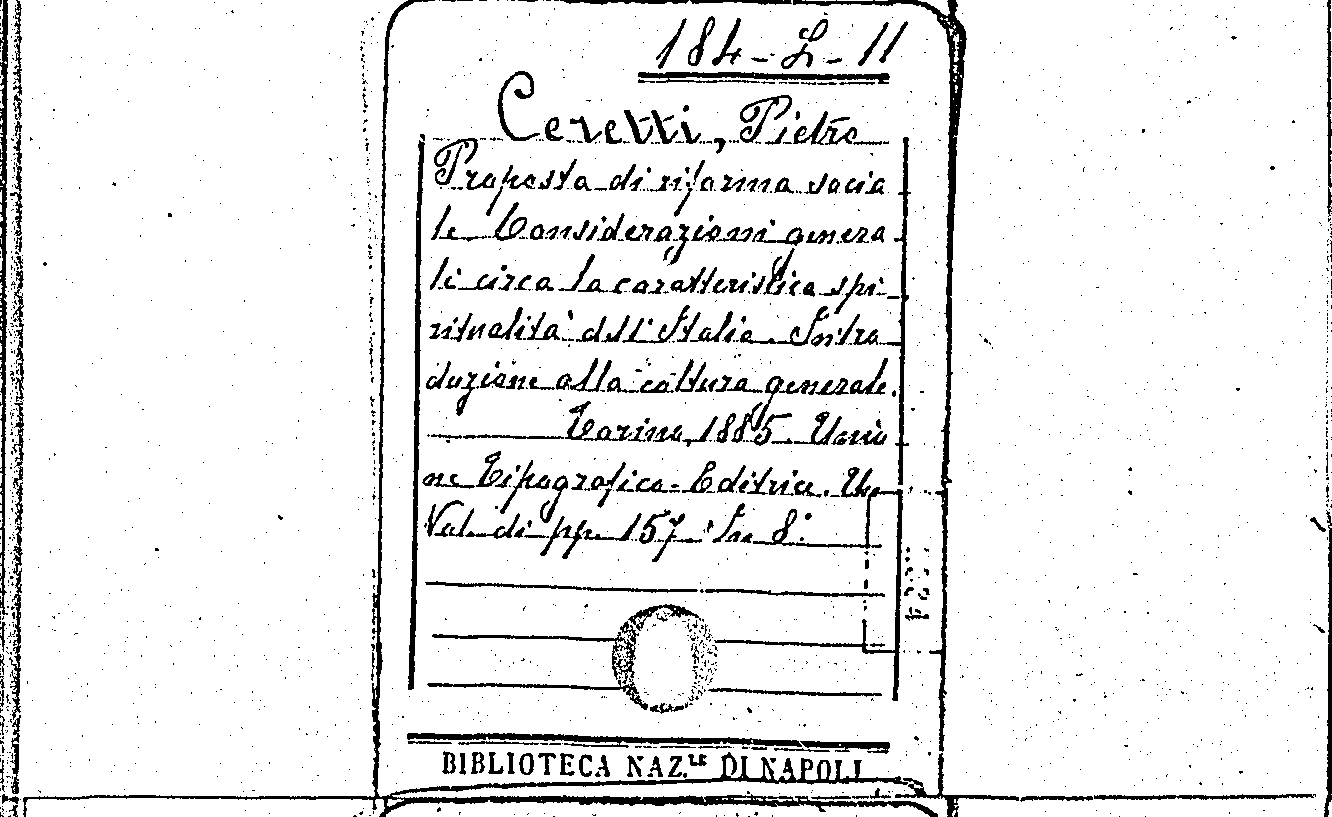 184-L-11
Ceretti, Pietro
Proposta di riforma socia
le Considerazioni genera
li circa la caratteristica spi-
ritualità dell'Italia. Intro
duzione alla coltura generale.
Torino, 1885. Unio
ne Tipografico-Editrice. Un
Vol. di pp. 157. In 8°.
BIBLIOTECA NAZ.LE DI NAPOLI